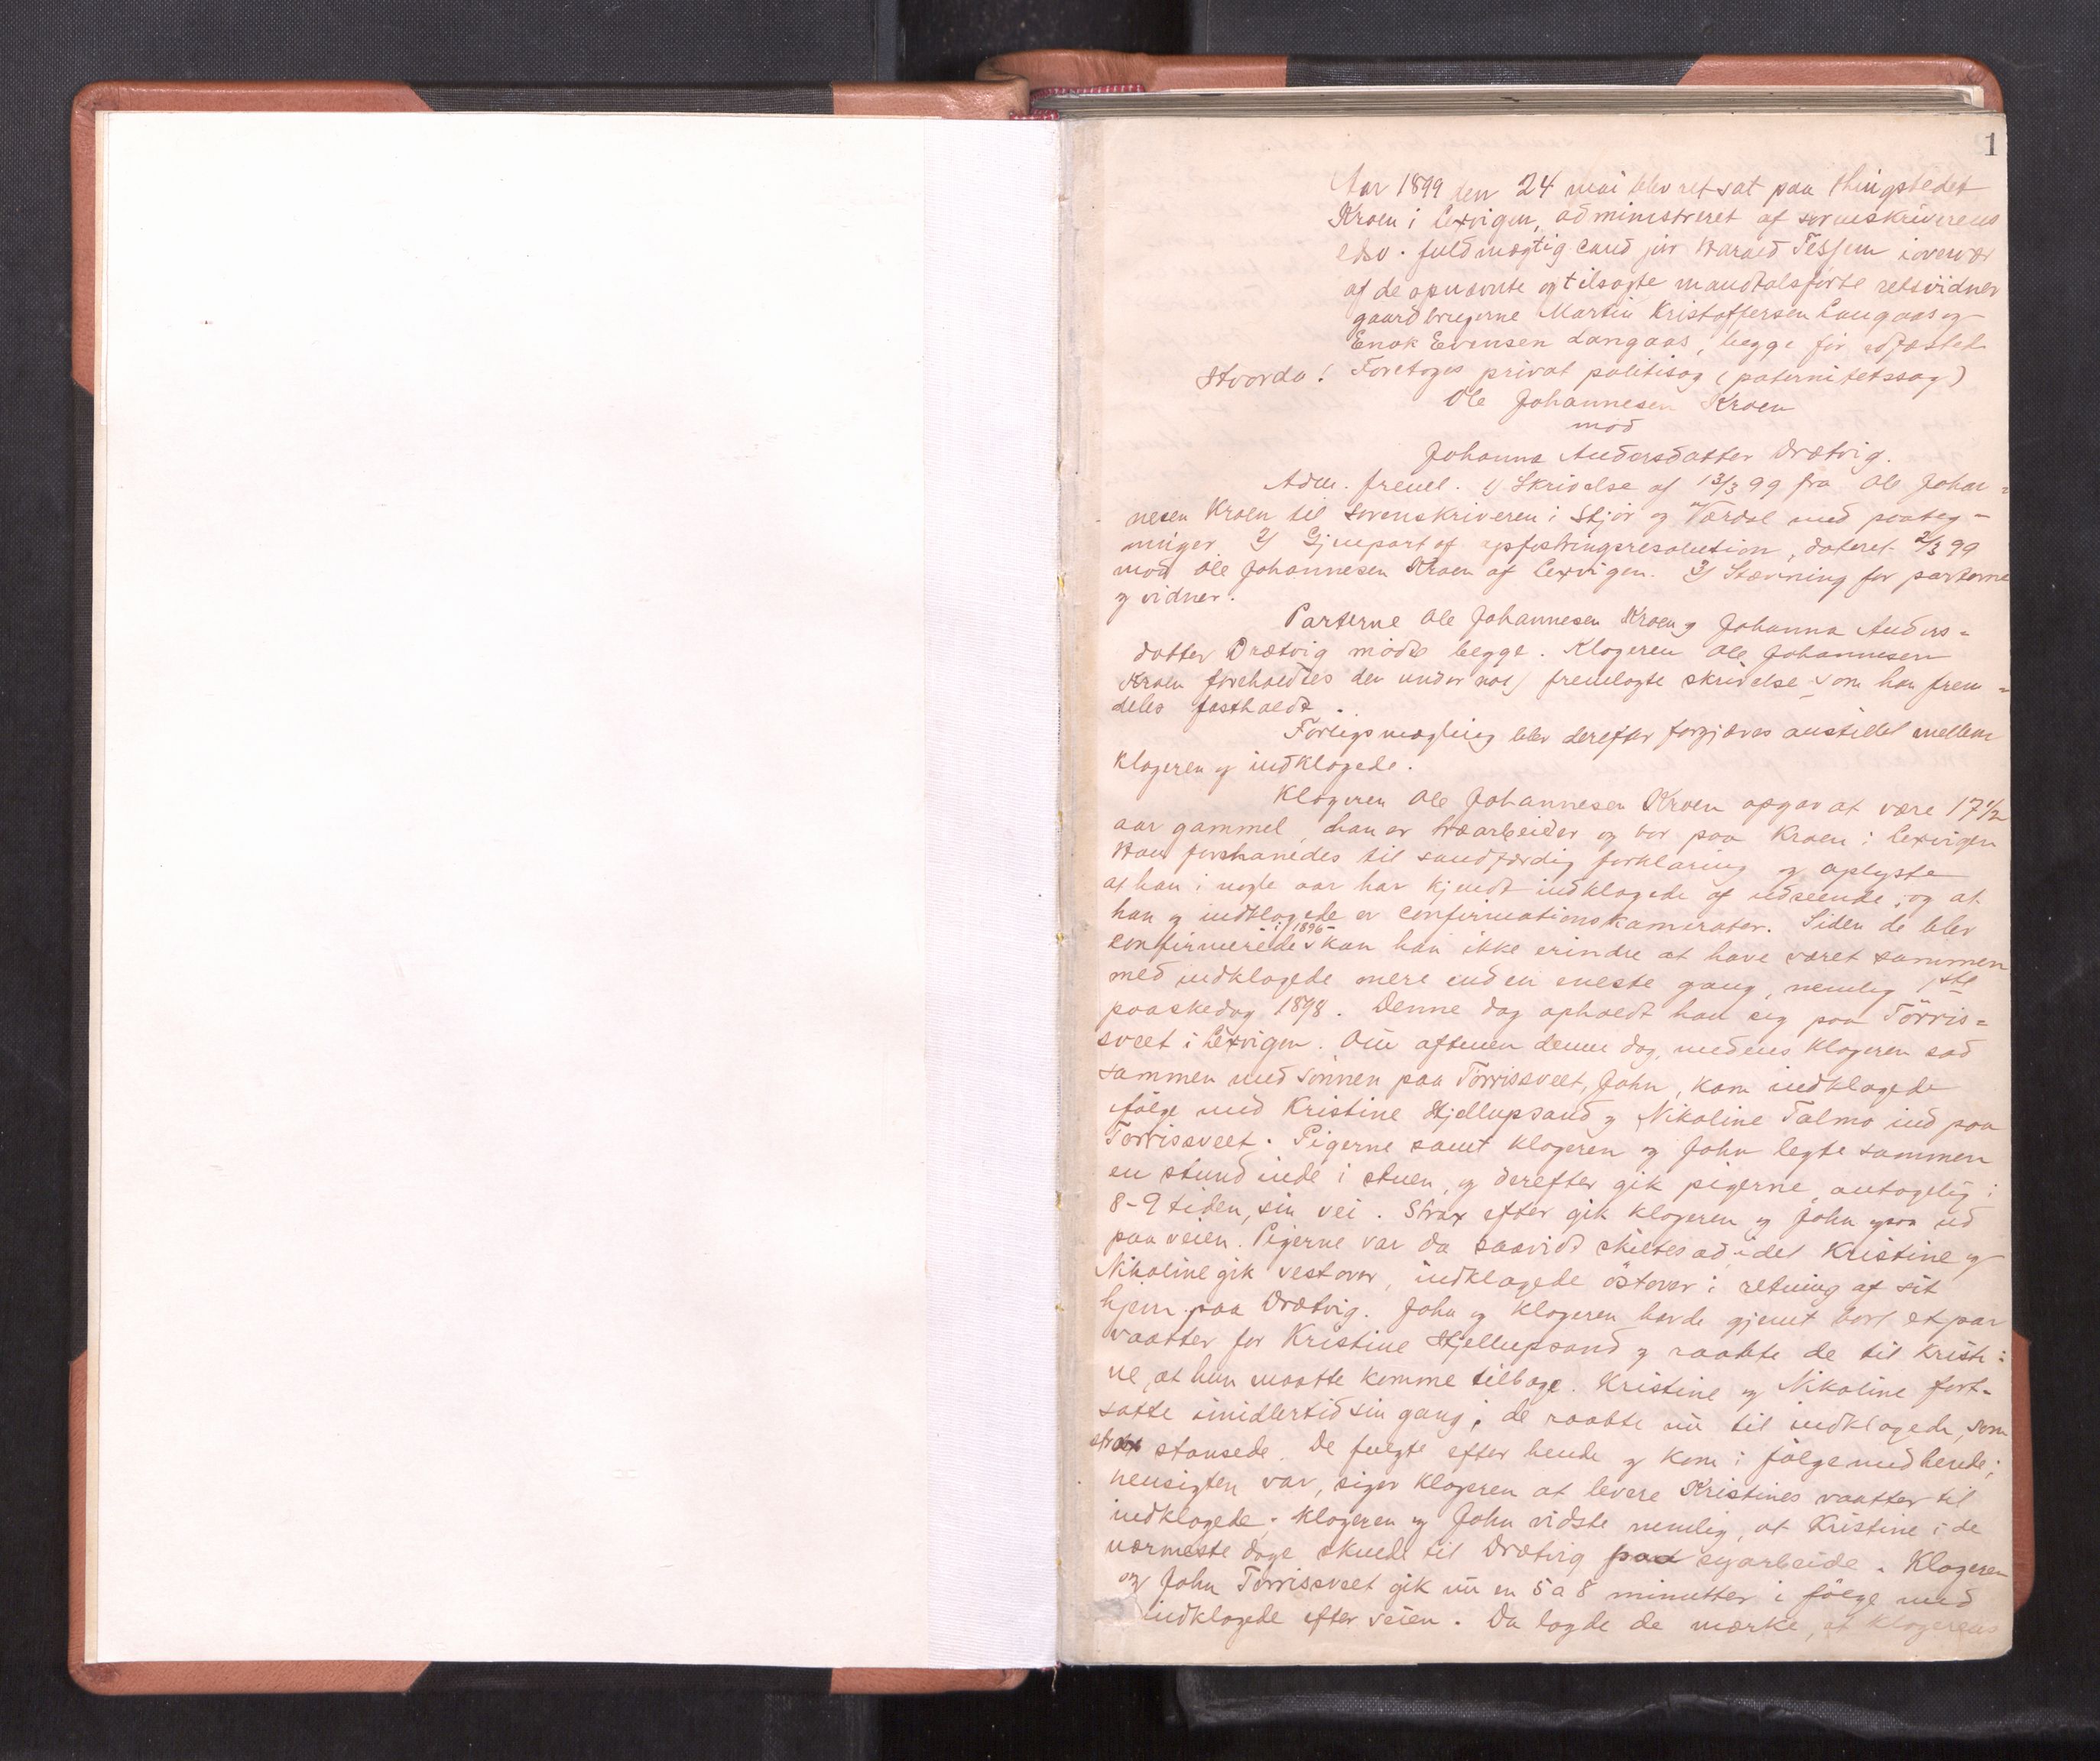 1
Aar 1899 den 24 mai blev ret sat paa thingstedet
Kroen i Lexvigen, administreret af sorenskriverens
edsv. fuldmægtig cand jur Harald Tessem i overvær
af de opnævnte og tilsagte mandtalsførte retsvidner
gaardbrugerne Martin Kristoffersen Langaas og
Enok Evensen Langaas, begge før edfæstet.
Hvorda! Foretoges privat politisag (paternitetssag)
Ole Johannesen Kroen
mod
Johanna Andersdatter Drætvig.
Adm. freml. 1) Skrivelse af 13/3 99 fra Ole Johan=
nesen Kroen til Sorenskriveren i Stjør og Værdal med paateg=
ninger 2) Gjenpart af opfostringsresolution, dateret 2/3 99
mod Ole Johannesen Kroen af Lexvigen. 3) Stævning for parterne
og vidner.
Parterne Ole Johannesen Kroen og Johanna Anders=
datter Drætvig mødte begge. Klageren Ole Johannesen
Kroen foreholdtes den under no 1) fremlagte skrivelse som han frem=
deles fastholdt.
Forligsmægling blev derefter forgjæves anstillet mellem
klageren og indklagede.
Klageren Ole Johannesen Kroen opgav at være 17 1/2
aar gammel, han er træarbeider og bor paa Kroen i Lexvigen
Han formanedes til sandfærdig forklaring og oplyste
at han i nogle aar har kjendt indklagede af udseende, og at
han og indklagede er confirmationskamerater. Siden de blev
confirmerede i 1896 kan han ikke erindre at have været sammen
med indklagede mere end en eneste gang, nemlig 1ste
paaskedag 1898. Denne dag opholdt han sig paa Törris=
sveet i Lexvigen. Om aftenen denne dag, medens klageren sad
sammen med sønnen paa Törrissveet, John, kom indklagede
i følge med Kristine Hjellupsand og Nikoline Talmo ind paa
Törrissveet. Pigerne samt klageren og John legte sammen
en stund inde i stuen, og derefter gik pigerne, antagelig i
8-9 tiden, sin vei. Strax efter gik klageren og John ogsaa ud
paa veien. Pigerne var da saavidt skiltes ad, idet Kristine og
Nikoline gik vestover, indklagede östover i retning af sit
hjem paa Drætvig. John og klageren havde gjemt bort et par
vaatter for Kristine Hjellupsand og raabte de til Kristi=
ne, at hun maatte komme tilbage. Kristine og Nikoline fort=
satte imidlertid sin gang; de raabte nu til indklagede, som
strax stansede. De fulgte efter hende og kom i følge med hende;
hensigten var, siger klageren at levere Kristines vaatter til
indklagede; klageren og John vidste nemlig, at Kristine i de
nærmeste dage skulde til Drætvig paa syarbeide. Klageren
og John Törrissveet gik nu en 5 a 8 minutter i følge med
indklagede efter veien. Da lagde de mærke, at klagerens